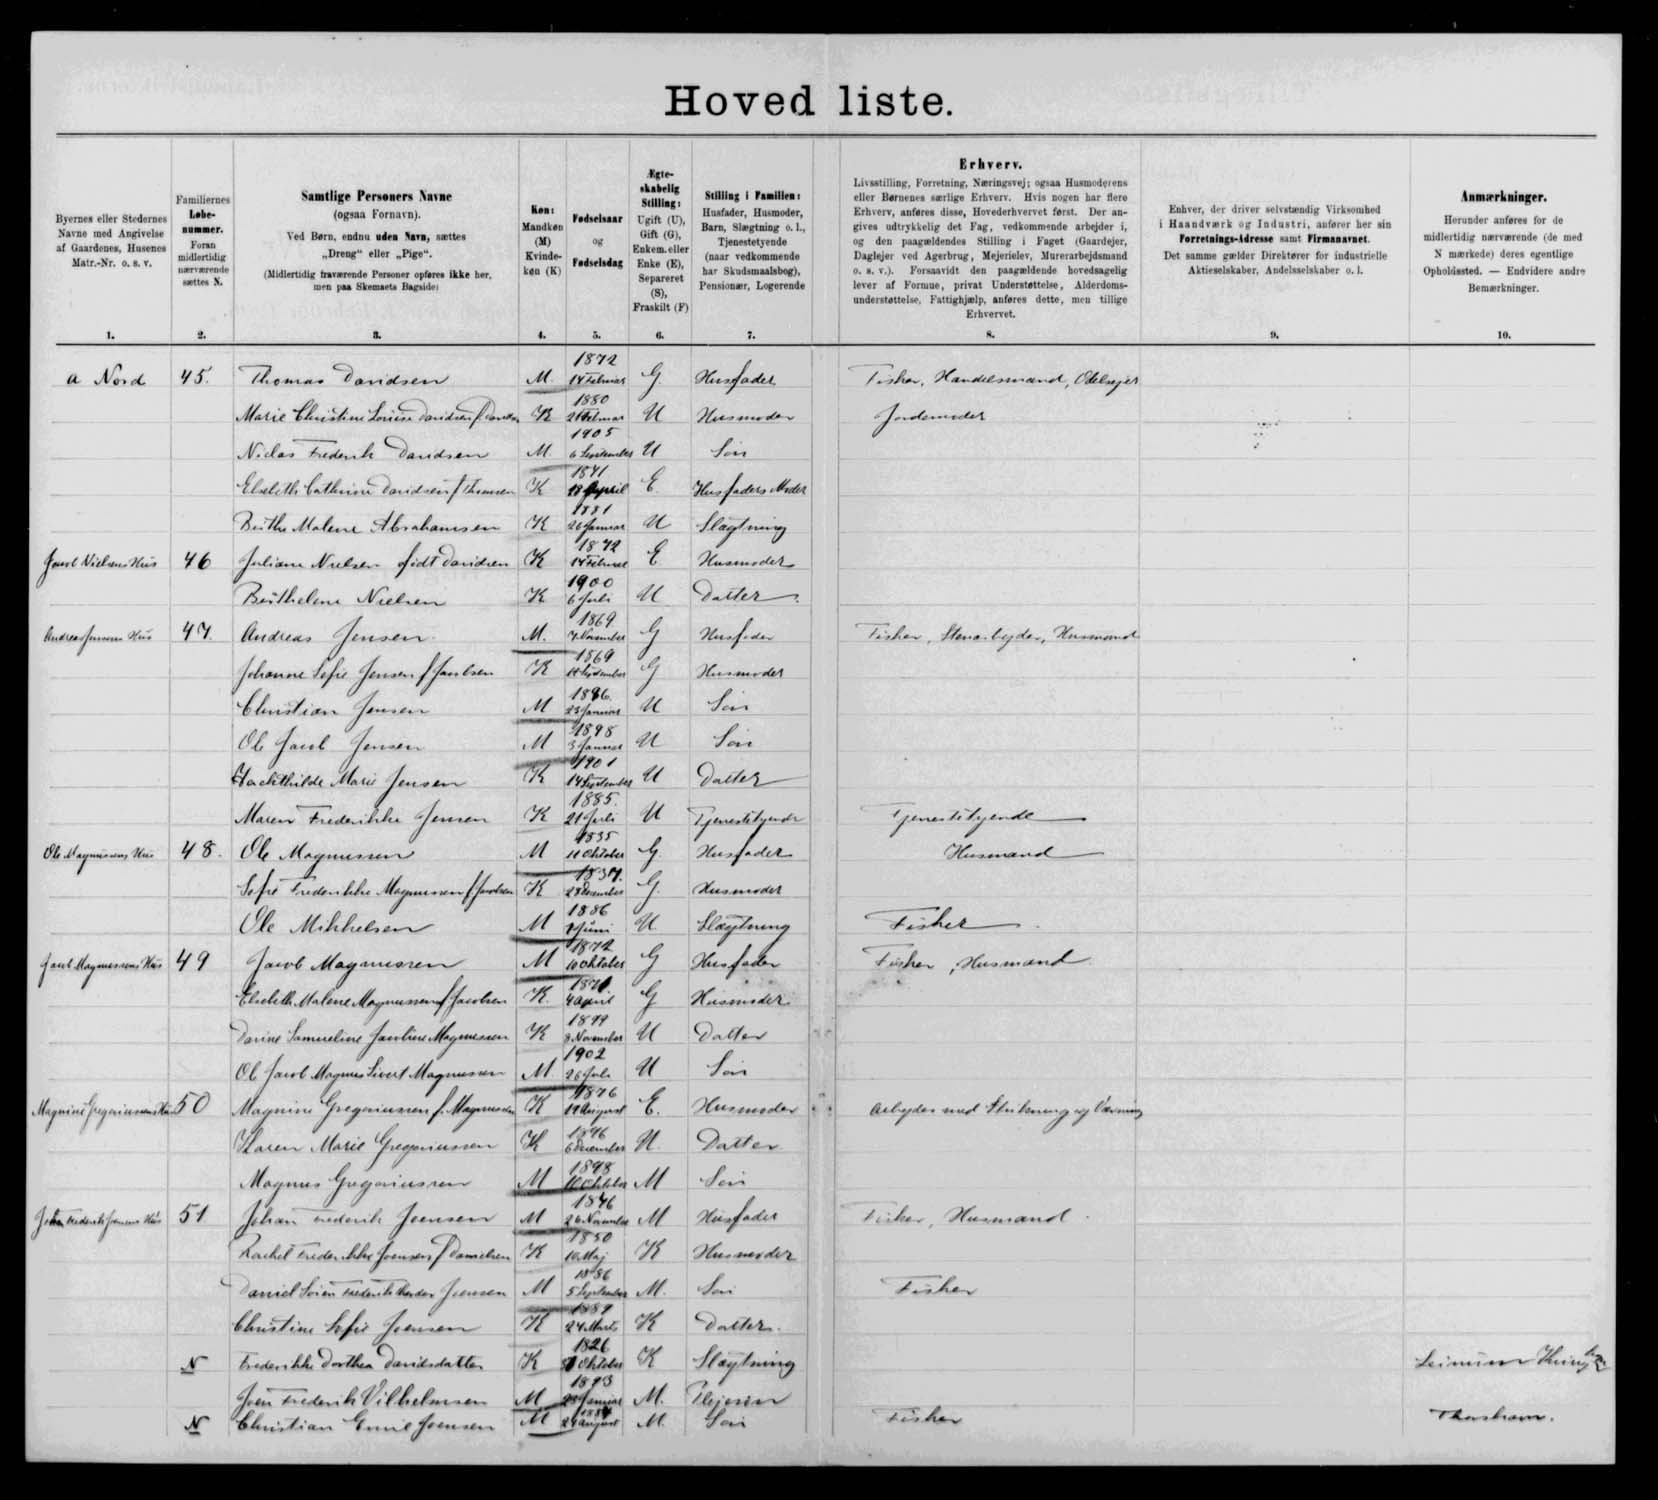 Hoved liste.
Byernes eller Stedernes Navne med Angivelse af Gaardenes, Husenes Matr.-Nr. o. s. v.
Familiernes Løbe-nummer. Foran midlertidig nærværende sættes N.
Samtlige Personers Navne (ogsaa Fornavn). Ved Børn, endnu uden Navn, sættes „Dreng“ eller „Pige“. (Midlertidig fraværende Personer opføres ikke her, men paa Skemaets Bagside)
Køn: Mandkøn (M) Kvinde-køn (K)
Fødselsaar og Fødselsdag
Ægte-skabelig Stilling: Ugift (U), Gift (G), Enkem. eller Enke (E), Separeret (S), Fraskilt (F)
Stilling i Familien: Husfader, Husmoder, Barn, Slægtning o. l., Tjenestetyende (naar vedkommende har Skudsmaalsbog), Pensionær, Logerende
Erhverv. Livsstilling, Forretning, Næringsvej; ogsaa Husmoderens eller Børnenes særlige Erhverv. Hvis nogen har flere Erhverv, anføres disse, Hovederhvervet først. Der angives udtrykkelig det Fag, vedkommende arbejder i, og den paagældendes Stilling i Faget (Gaardejer, Daglejer ved Agerbrug, Mejerielev, Murerarbejdsmand o. s. v.). Forsaavidt den paagældende hovedsagelig lever af Formue, privat Understøttelse, Alderdoms-understøttelse, Fattighjælp, anføres dette, men tillige Erhvervet.
Enhver, der driver selvstændig Virksomhed i Haandværk og Industri, anfører her sin Forretnings-Adresse samt Firmanavnet. Det samme gælder Direktører for industrielle Aktieselskaber, Andelsselskaber o. l.
Anmærkninger. Herunder anføres for de midlertidig nærværende (de med N mærkede) deres egentlige Opholdssted. — Endvidere andre Bemærkninger.
1. 2. 3. 4. 5. 6. 7. 8. 9. 10.
a Nord 45. Thomas Davidsen M. 1872 14 Februar G. Husfader Fisker, Handelsmand, Odelsejer
Marie Christine Louise Davidsen f. Davidsen K 1880 21 Februar U Husmoder Jordemoder
Niclas Frederik Davidsen M 1905 6 September U Søn
Elsebeth Cathrine Davidsen f Thomsen K 1841 18 April E. Husfaders Moder
Birthe Malene Abrahamsen K 1881 26 Januar U Slægtning
Jacob Nielsens Hus 46 Juliane Nielsen født Davidsen K 1872 14 Februar E Husmoder
Birthelene Nielsen K 1900 6 Juli U Datter
Andreas Jensens Hus 47. Andreas Jensen M. 1869 7 November G Husfader Fisker, Stenarbejder, Husmand
Johanne Sofie Jensen f Jacobsen K 1869 14 September G Husmoder
Christian Jensen M 1896. 23 Januar U Søn
Ole Jacob Jensen M 1898 3 Januar U Søn
Marie Jensen K 1901 14 September U Datter
Maren Frederikke Jensen K 1885. 21 Juli U Tjenestetyende Tjenestetyende
Ole Magnussens Hus 48. Ole Magnussen M 1835 11 Oktober G. Husfader Husmand
Sofie Frederikke Magnussen f Jacobsen K 1837. 28 December G. Husmoder
Ole Mikkelsen M 1886 Juni U. Slægtning Fisker
Jacob Magnussens Hus 49 Jacob Magnussen M 1872 10 Oktober G Husfader Fisker, Husmand
Elsebeth Malene Magnussen f Jacobsen K. 1871 4 April G Husmoder
Darine Samueline Jacobine Magnussen K 1899 8 November U Datter
Ole Jacob Magnus Sivert Magnussen M 1902 26 Juli U Søn
Magnine Gregoriussens Hus 50 Magnine Gregoriussen f. Magnussen K 1876 19 August E. Husmoder Arbejder med Strikning og Vævning
Karen Marie Gregoriussen K 1896 6 December U. Datter
Magnus Gregoriussen M 1898 10 Oktober M Søn
Johan Frederik Joensens Hus 51 Johan Frederik Joensen M 1846 26 November M Husfader Fisker, Husmand
Rachel Frederikke Joensen f Danielsen K 1850 10 Maj K Husmoder
Daniel Søren Frederik Joensen M 1886 5 September M. Søn Fisker
Christine Sofie Joensen K 1889 24 Marts K Datter.
N Frederikke Dorthea Davidsdatter K 1826 Oktober K Slægtning Leinum
Joen Frederik Vilhelmsen M 1893 28 Januar M. Plejesøn
N Christian Emil Joensen M 1884 24 August M. Søn Fisker Thorshavn.